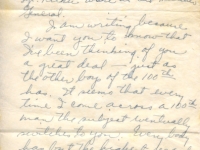 General.
I am writing because
I want you to know that
I've been thinking of you
a great deal — just as
the other boy of the 100th
has. It seems that every
time I come across a 100th
man the subject eventually
switches to you. Everybody
has but the highest